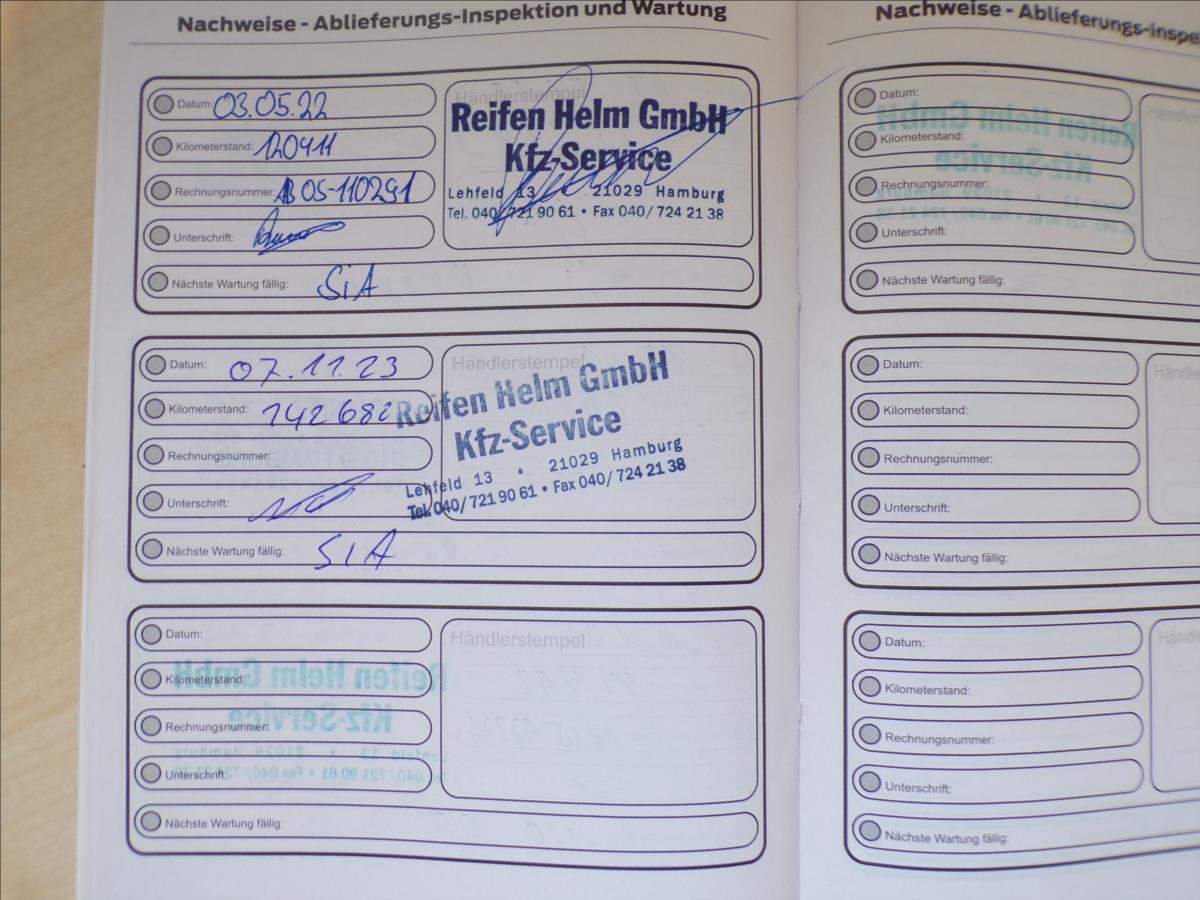 Nachweise - Ablieferungs-Inspektion und Wartung
Datum: 03.05.22
Kilometerstand: 120411
Rechnungsnummer: 05-110291
Unterschrift:
Nächste Wartung fällig: SiA
Händlerstempel
Reifen Helm GmbH
Kfz-Service
Lehfeld 13 • 21029 Hamburg
Tel. 040/721 90 61 • Fax 040/724 21 38
Datum: 07.11.23
Kilometerstand: 142682
Rechnungsnummer:
Unterschrift:
Nächste Wartung fällig: SIA
Händlerstempel
Reifen Helm GmbH
Kfz-Service
Lehfeld 13 • 21029 Hamburg
Tel. 040/721 90 61 • Fax 040/724 21 38
Datum:
Kilometerstand:
Rechnungsnummer:
Unterschrift:
Nächste Wartung fällig:
Händlerstempel
Nachweise - Ablieferungs-Inspe
Datum:
Kilometerstand:
Rechnungsnummer:
Unterschrift:
Nächste Wartung fällig:
Händler
Datum:
Kilometerstand:
Rechnungsnummer:
Unterschrift:
Nächste Wartung fällig:
Händle
Datum:
Kilometerstand:
Rechnungsnummer:
Unterschrift:
Nächste Wartung fällig:
Händ